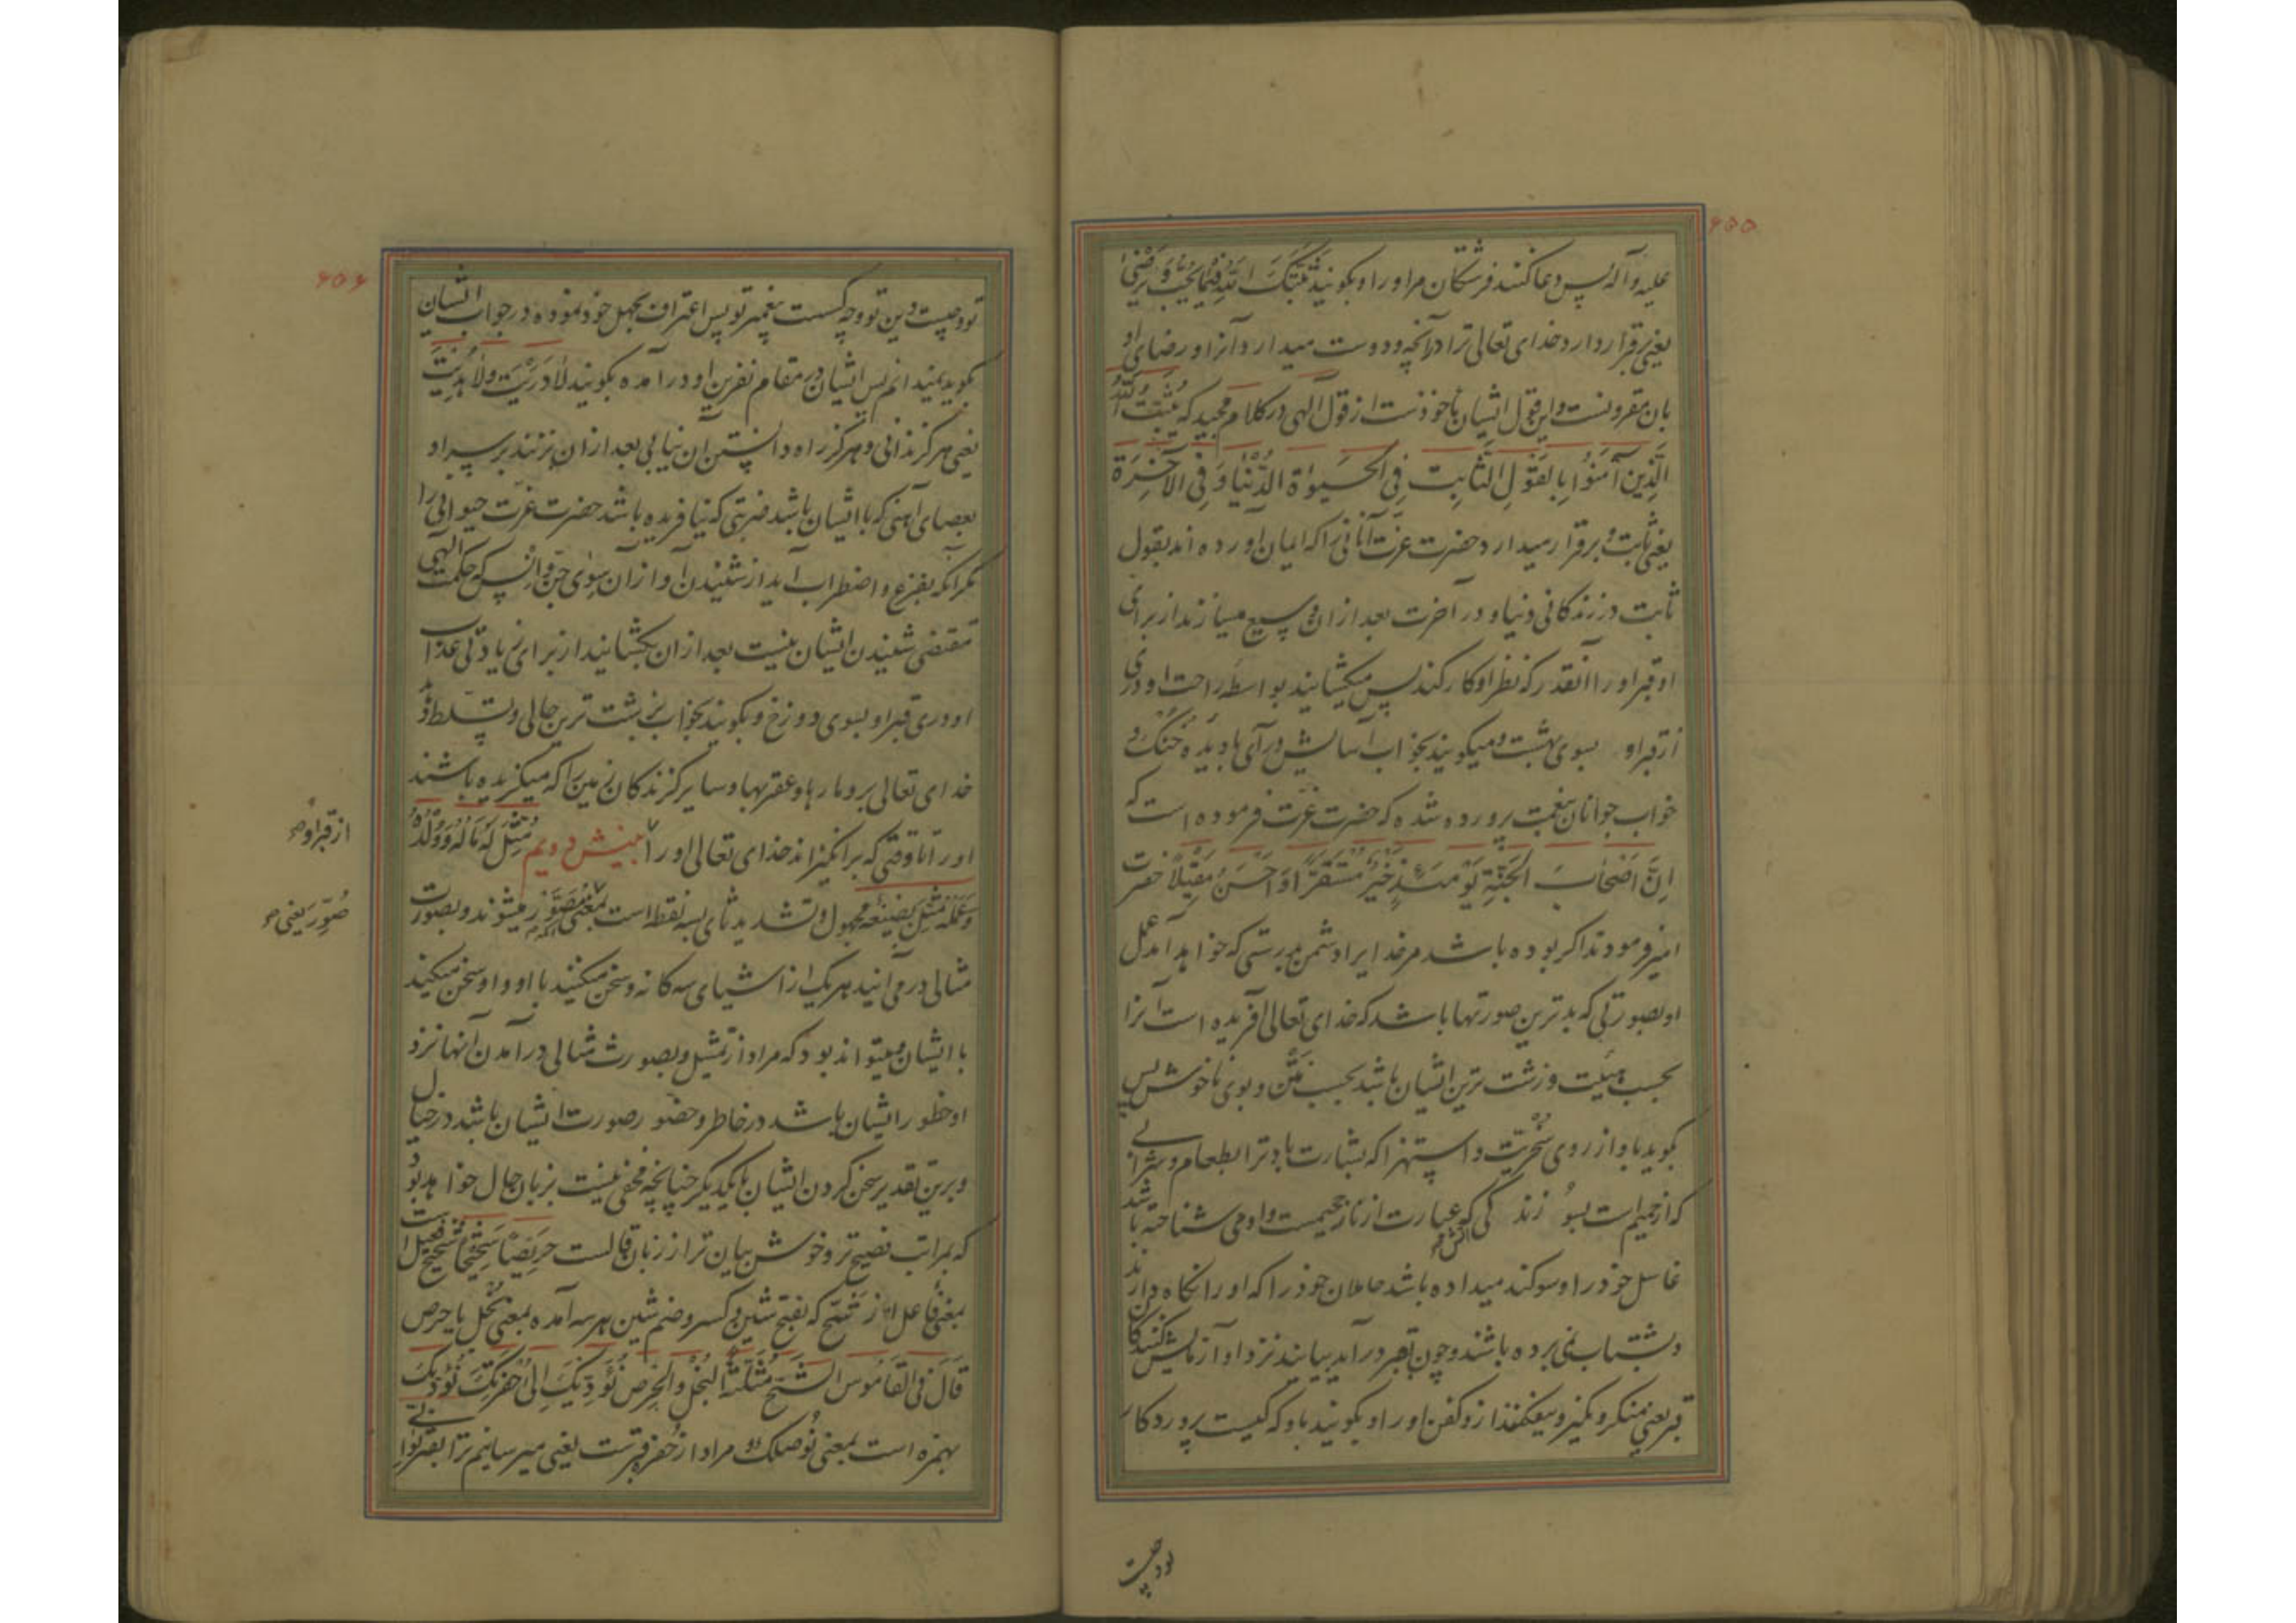 ۶۵۵
علیه و آله پس دعا کنند فرشتکان مر او را و بکویند ثَبَّتَکَ اللّه فیما یُحِبُّ وَ یَرْضیٰ
یعنی برقرار دارد خدای تعالی ترا در آنچه دوست میدارد آنرا و رضای او
بان مقرونست و این قول ایشان ماخوذست از قول الهی در کلام مجید که یُثَبِّتُ اللّهُ
الَّذِینَ آمَنُوا بِالقَوْلِ الثَّابِت فِی الْحَیوٰةِ الدُّنْیَا وَ فِی الآخِرَةِ
یعنی ثابت و برقرار میدارد حضرت عزت آنانی را که ایمان آورده اند بقول
ثابت در زندکانی دنیا و در آخرت بعد از ان وسیع میسازند از برای
او قبر او را آنقدر که نظر او کار کند پس میکشایند بواسطه راحت او دری
از قبر او بسوی بهشت و میکویند بخواب آسایش درآی با دیده خنک
خواب جوانان بنعمت پرورده شده که حضرت عزت فرموده است که
اِنَّ اَصْحٰابَ الجَنَّةِ یَوْمَئِذٍ خَیْرٌ مُسْتَقَرًّا وَ اَحْسَنُ مَقِیْلًا حضرت
امیر فرمودند اکر بوده باشد مر خدا را دشمن بدرستی که خواهد آمد عمل
او بصورتی که بدترین صورتها باشد که خدای تعالی آفریده است آنرا
بحسب هیئت و زشت ترین ایشان باشد بحسب نتن و بوی ناخوش پس
بکوید باو از روی سخریت و استهزا که بشارت باد ترا بطعام و شرابی
که از حمیم است بسوزندکی که عبارت از نار جحیمست و او می شناخته باشد
غاسل خود را و سوکند میداده باشد حاملان خود را که او را نکاه دارند
و بشتاب نمی برده باشند و چون بقبر درآید بیایند نزد او آزمایش کنندکان
قبر یعنی منکر و نکیر و بیفکنند ازو کفن او را و بکویند باو که کیست پروردکار
تو و چیست
۶۵۶
تو و چیست دین تو و چه کسست پیغمبر تو پس اعتراف بجهل خود نموده در جواب ایشان
بکوید نمیدانم پس ایشان در مقام نفرین او درآمده بکویند لادَرَیْتَ ولا هُدِیْتَ
یعنی هرکز ندانی و هرکز راه دانستن آن نیابی بعد از ان بزنند بر سر او
بعصای آهنی که با ایشان باشد ضربتی که نیافریده باشد حضرت عزت حیوانی را
مکر آنکه بفزع و اضطراب آید از شنیدن آواز آن سوای جن و انس که حکمت الهی
مقتضی شنیدن ایشان نیست بعد از ان بکشایند از برای زیادتی عذاب
او دری قبر او بسوی دوزخ و بکویند بخواب بزشت ترین حالی و تسلط دهد
خدای تعالی برو مارها و عقربها و سایر کزندکان زمین را که میکزیده باشند
او را تا وقتی که برانکیزاند خدای تعالی او را بینش دویم مُثِّلَ لَهُ مَالُهُ وَ وَلَدُهُ
وَ عَمَلُهُ مثل بصیغه مجهول و تشدید ثای بسه نقطه است بمعنی مصوّر میشوند و بصورت
مثالی درمی آیند هر یک از اشیای سه کانه و سخن میکنند با او و او سخن میکند
با ایشان و میتواند بود که مراد از تمثیل و بصورت مثالی درآمدن آنها نزد
او خطور ایشان باشد در خاطر و حضور صورت ایشان باشد در خیال
و برین تقدیر سخن کردن ایشان با یکدیکر چنانچه مخفی نیست بزبان حال خواهد بود
که بمراتب فصیح تر و خوش بیان تر از زبان قالست حَرِیْصًا شَحِیْحًا شحیح فعیل است
بمعنی فاعل از شح که بفتح شین و کسر و ضم شین هر سه آمده بمعنی بخل با حرص
قَالَ فی القَامُوس الشَّح مُثَلَّثَةً البُخْل وَ الحِرْص نُؤَدِّیکَ اِلیٰ حُفْرَتِکَ نُؤَدِّیکَ
بهمزه است بمعنی نُوصِلُکَ و مراد از حفره قبرست یعنی میرسانیم ترا بقبر تو
از قبر او
صُوِّرَ یعنی